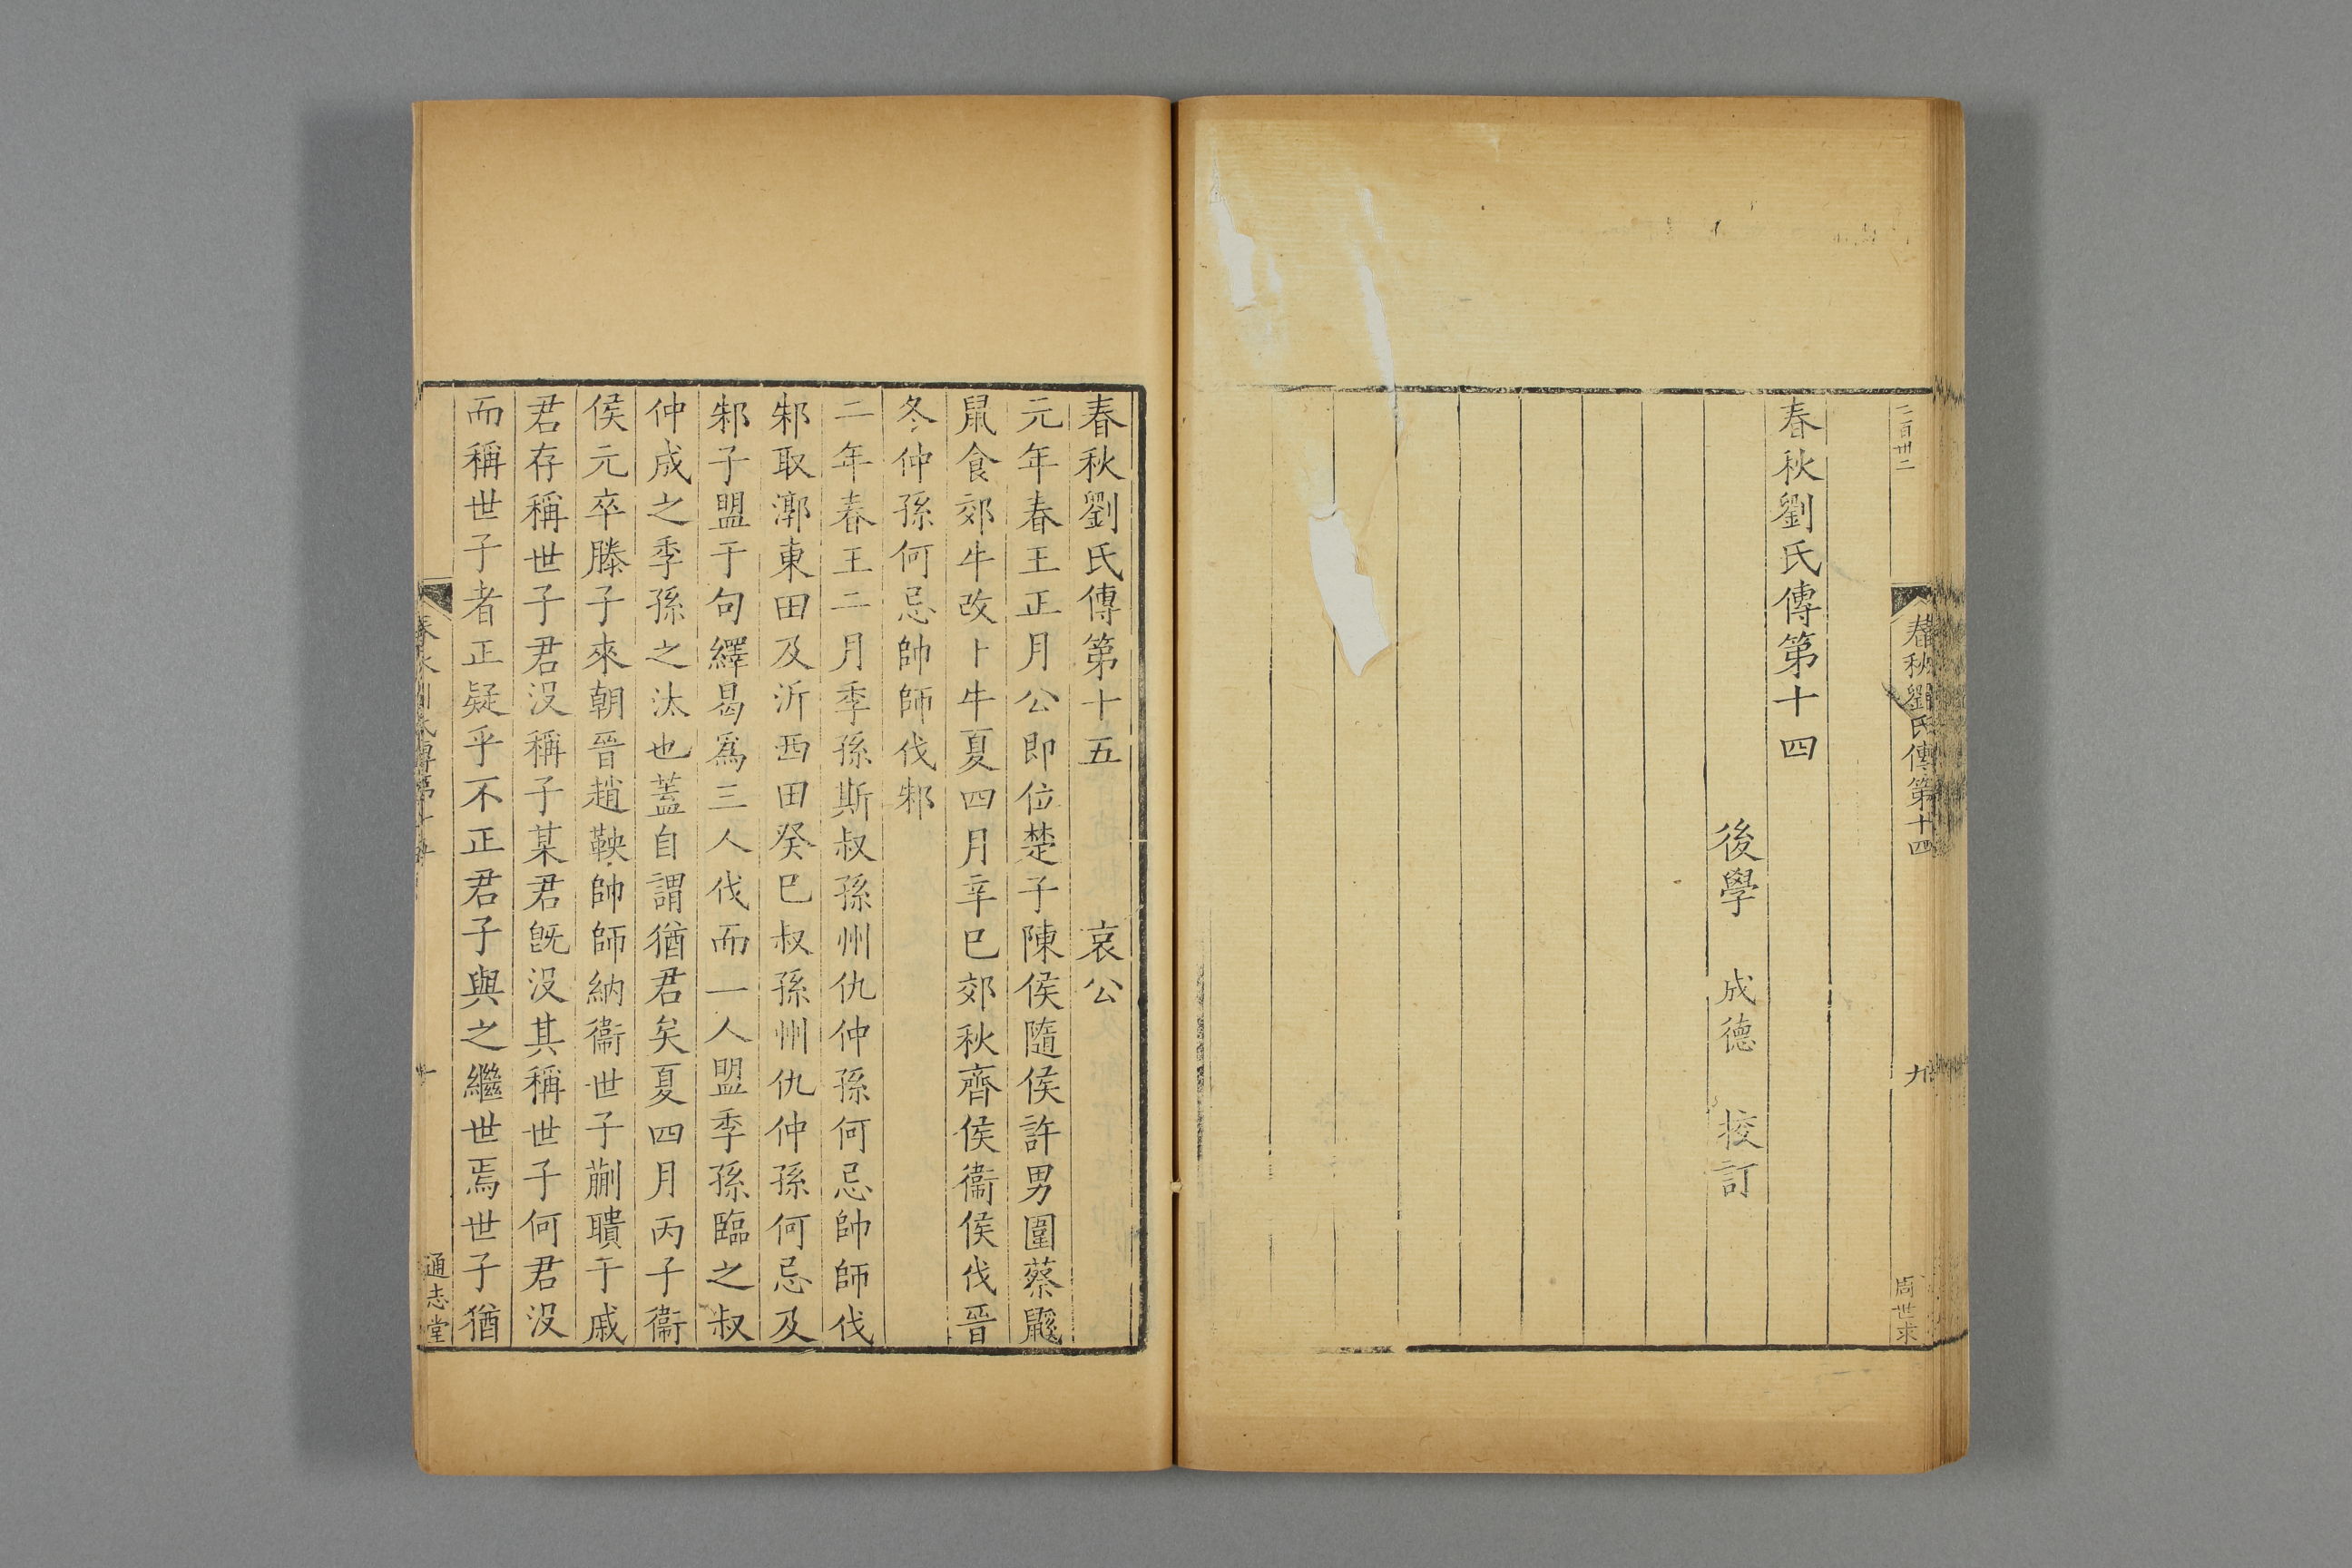 二百卅二
春秋劉氏傳第十四
九
周世求
春秋劉氏傳第十四
後學 成德 挍訂
春秋劉氏傳第十五 哀公
元年春王正月公即位楚子陳侯隨侯許男圍蔡鼷
鼠食郊牛改卜牛夏四月辛巳郊秋齊侯衞侯伐晉
冬仲孫何忌帥師伐邾
二年春王二月季孫斯叔孫州仇仲孫何忌帥師伐
邾取漷東田及沂西田癸巳叔孫州仇仲孫何忌及
邾子盟于句繹曷爲三人伐而一人盟季孫臨之叔
仲成之季孫之汰也蓋自謂猶君矣夏四月丙子衞
侯元卒滕子來朝晉趙鞅帥師納衞世子蒯聵于戚
君存稱世子君没稱子某君旣没其稱世子何君没
而稱世子者正疑乎不正君子與之繼世焉世子猶
春秋劉氏傳第十五
一
通志堂